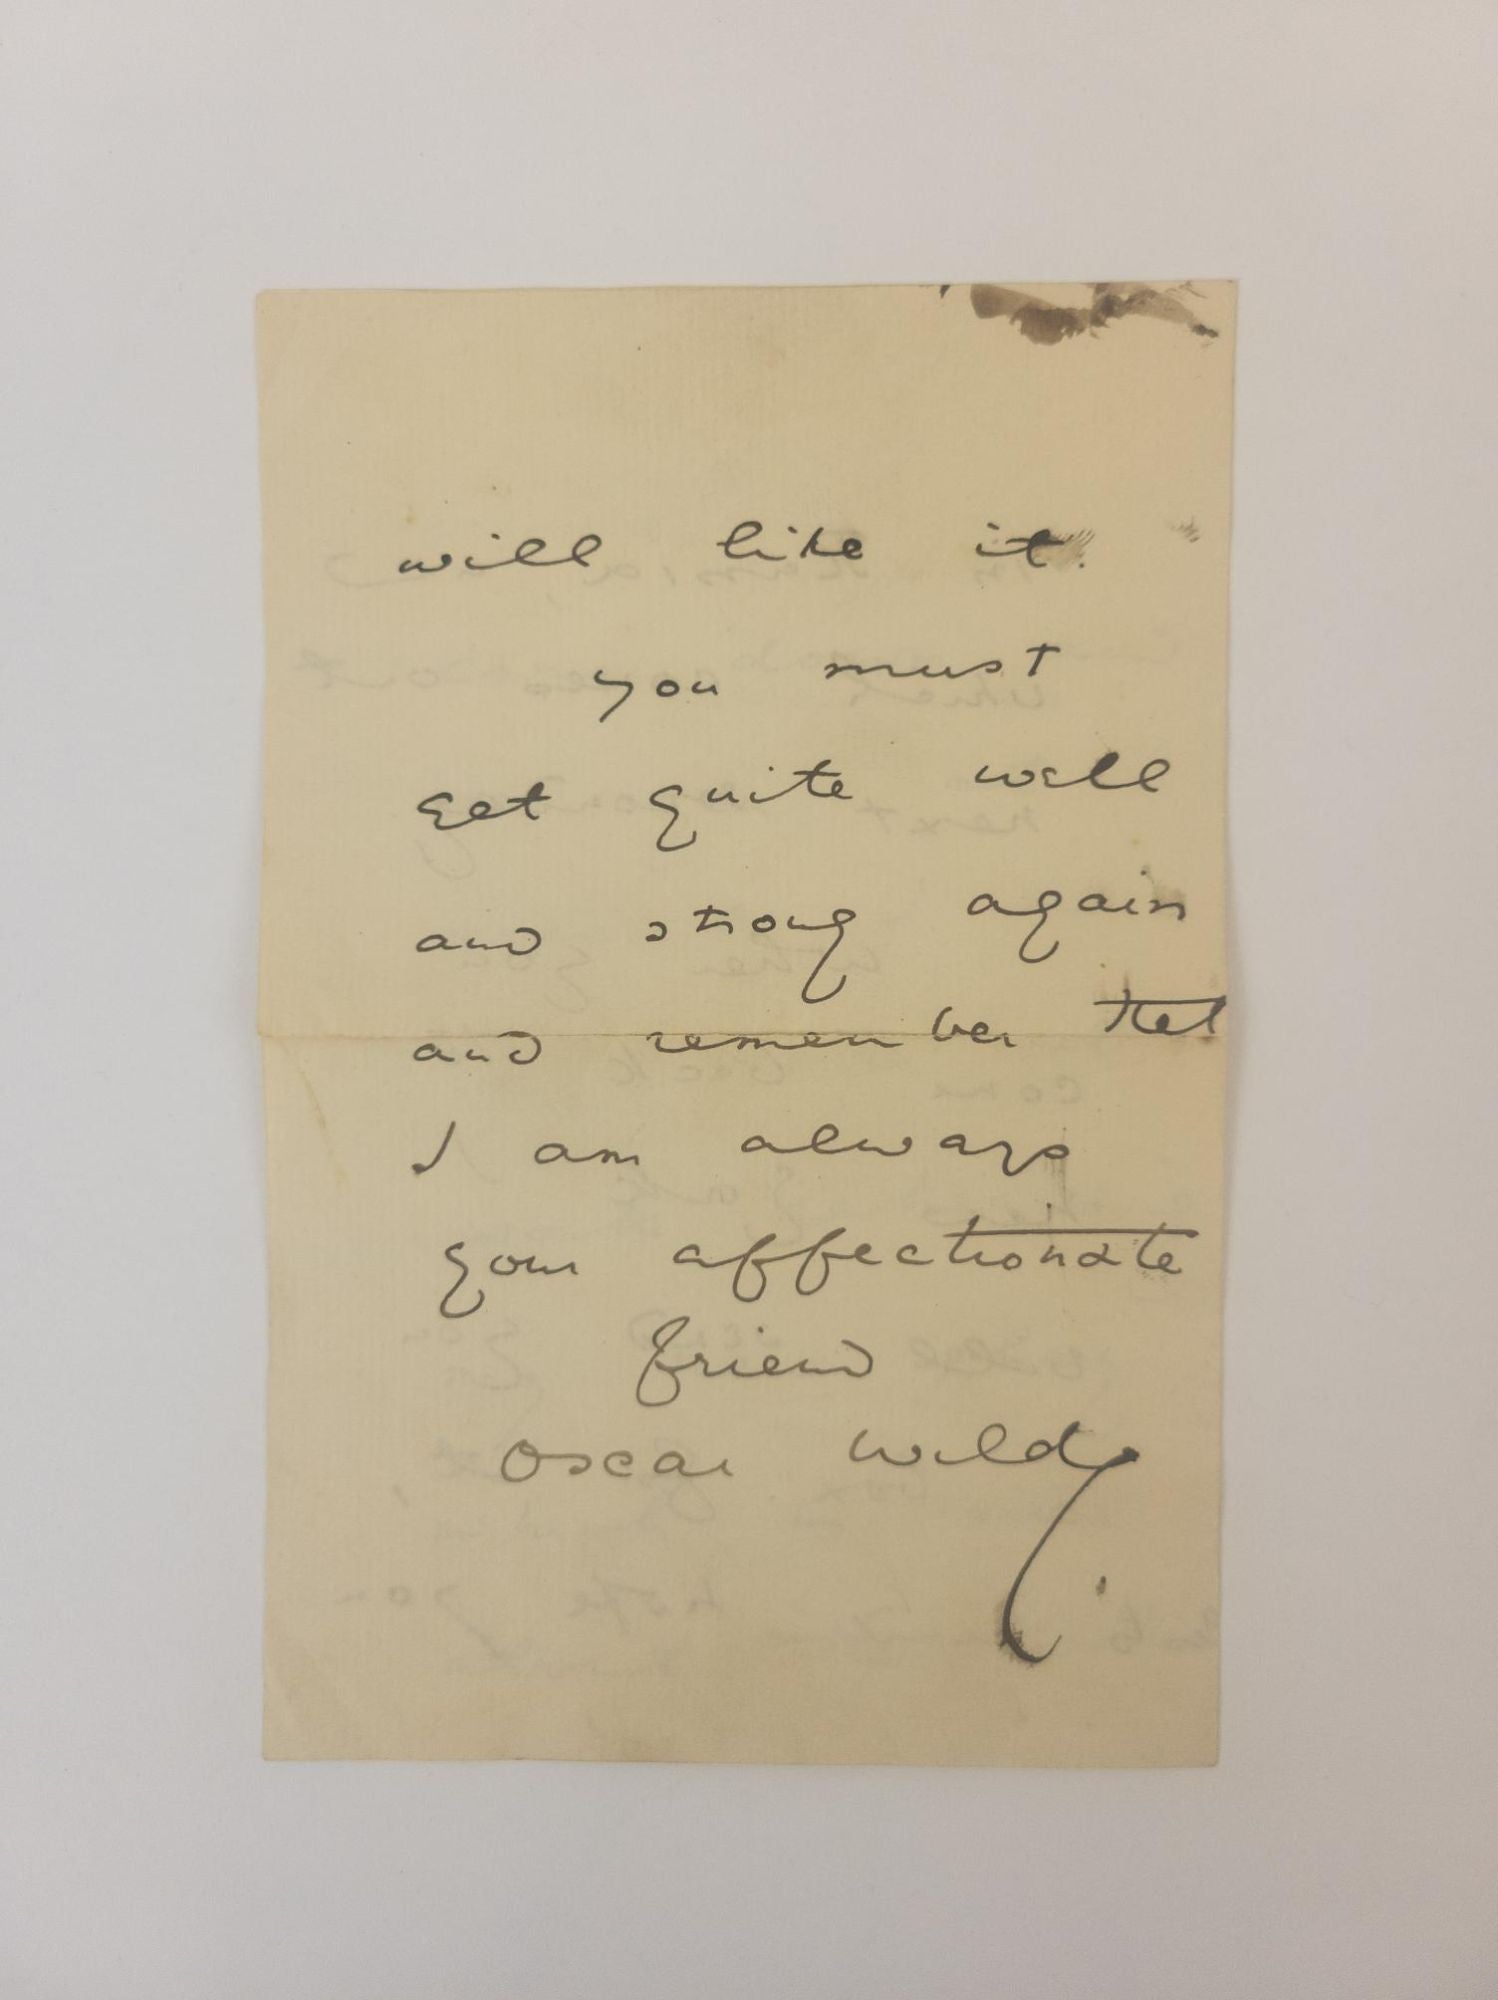 will like it.
you must
get quite well
and strong again
and remember that
I am always
your affectionate
friend
Oscar Wilde